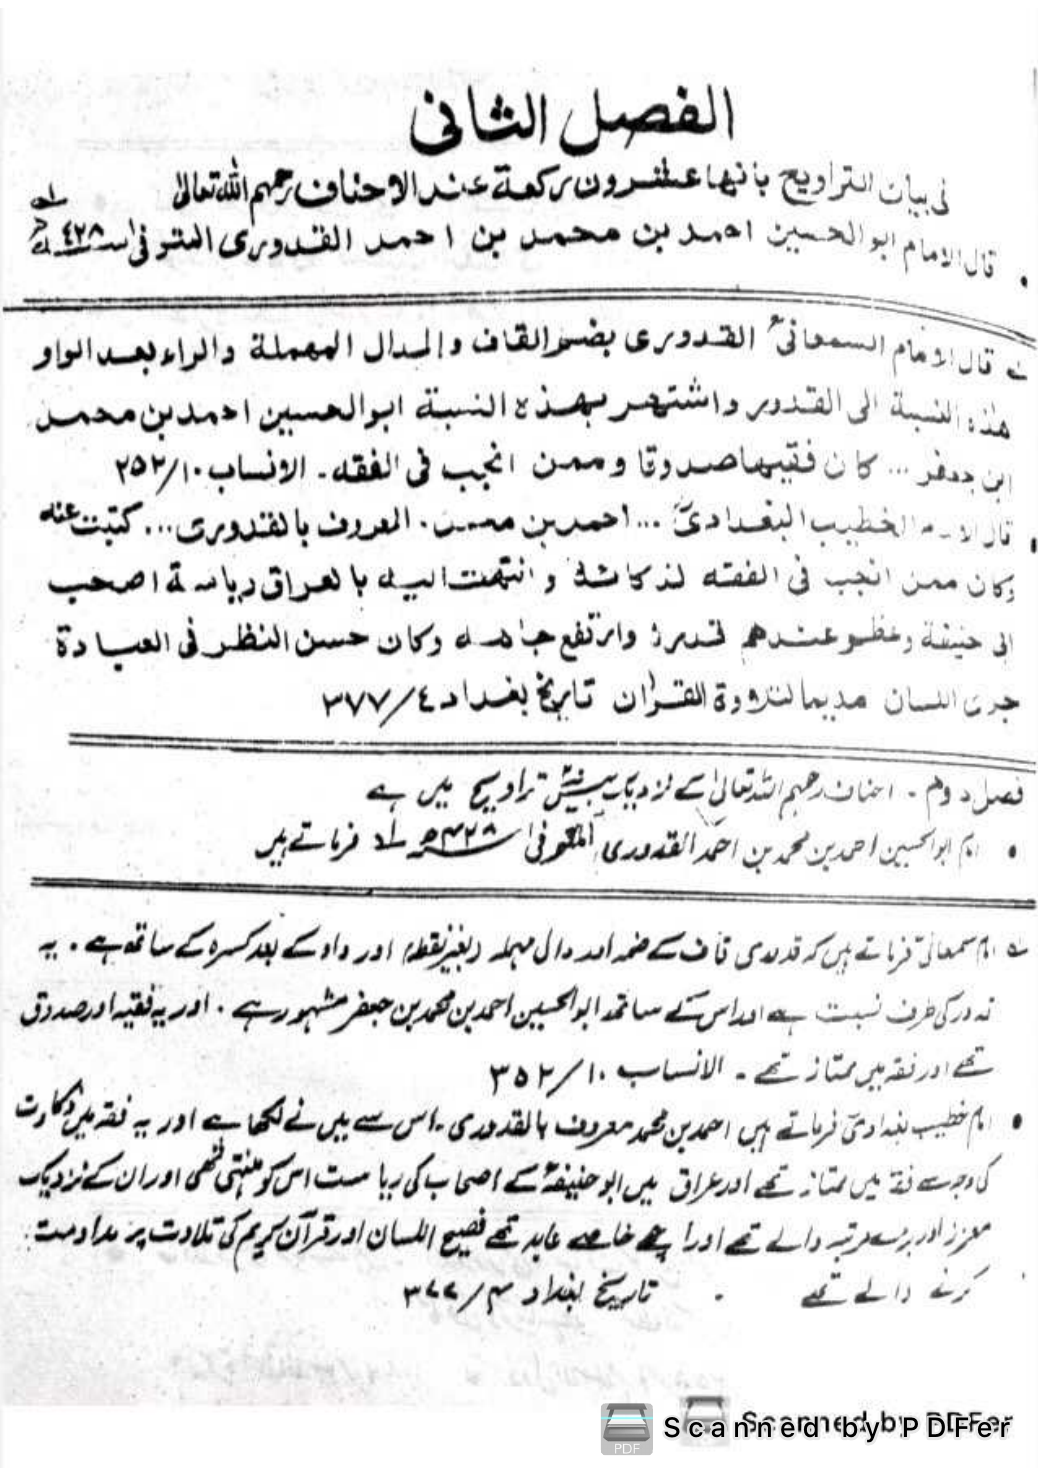 الفصل الثانی
فی بیان التراویح بانها عشرون رکعة عند الاحناف رحمهم الله تعالیٰ
• قال الامام ابو الحسین احمد بن محمد بن احمد القدوری المتوفی ٤٢٨ھ لہ
لہ قال الامام السمعانی القدوری بضم القاف والدال المهملة والراء بعد الواو
هذه النسبة الی القدور واشتهر بهذه النسبة ابو الحسین احمد بن محمد
ابن جعفر ... کان فقیها صدوقا وممن انجب فی الفقه ۔ الانساب ١٠/٣٥٢
• قال الامام الخطیب البغدادیؒ ... احمد بن محمد . المعروف بالقدوری ... کتبت عنه
وکان ممن انجب فی الفقه لذکائه وانتهت الیه بالعراق ریاسة اصحب
ابی حنیفة وعظم عندهم قدره وارتفع جاهه وکان حسن النظر فی العبادة
جری اللسان مدیما لتلاوة القرآن تاریخ بغداد ٤/٣٧٧
فصل دوم ۔ احناف رحمہم اللہ تعالیٰ کے نزدیک بیس تراویح میں ہے
• امام ابو الحسین احمد بن محمد بن احمد القدوری المتوفیٰ ۴۲۸ھ لہ فرماتے ہیں
لہ امام سمعانی فرماتے ہیں کہ قدوری قاف کے ضمہ اور دال مہملہ (بغیر نقطہ) اور واو کے بعد کسرہ کے ساتھ ہے ۔ یہ
قدور کی طرف نسبت ہے اور اس کے ساتھ ابو الحسین احمد بن محمد بن جعفر مشہور ہے ۔ اور یہ فقیہ اور صدوق
تھے اور فقہ میں ممتاز تھے ۔ الانساب ۱۰/۳۵۲
• امام خطیب بغدادیؒ فرماتے ہیں احمد بن محمد معروف بالقدوری ۔ اس سے میں نے لکھا ہے اور یہ فقہ میں ذکاوت
کی وجہ سے فقہ میں ممتاز تھے اور عراق میں ابو حنیفہؒ کے اصحاب کی ریاست اس کو منتہی تھی اور ان کے نزدیک
معزز اور بڑے مرتبہ والے تھے اور اچھے خاصے عابد تھے فصیح اللسان اور قرآن کریم کی تلاوت پر مداومت
کرنے والے تھے ۔ تاریخ بغداد ۴/۳۷۷
Scanned by PDFer
Scanned by PDFer
PDF